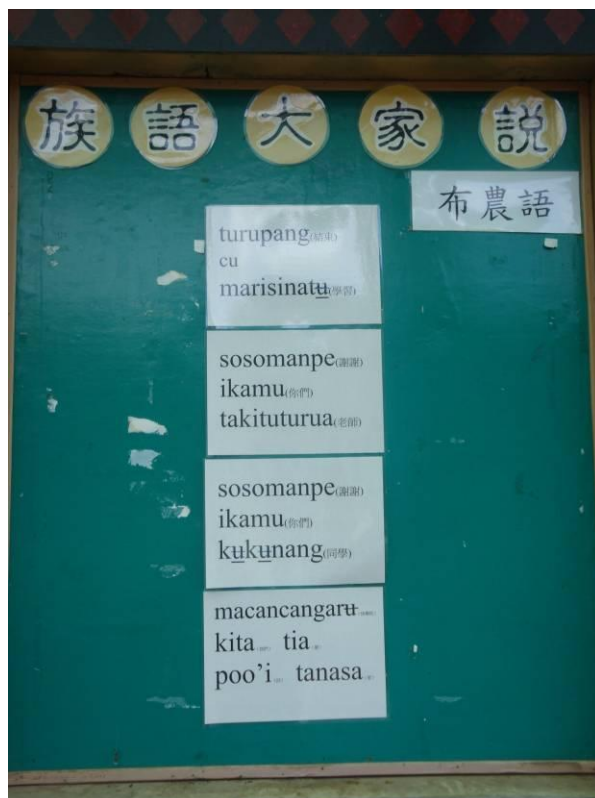 族語大家說
布農語
turupang(結束)
cu
marisinatʉ(學習)
sosomanpe(謝謝)
ikamu(你們)
takituturua(老師)
sosomanpe(謝謝)
ikamu(你們)
kʉkʉnang(同學)
macancangarʉ
kita tia
poo'i tanasa